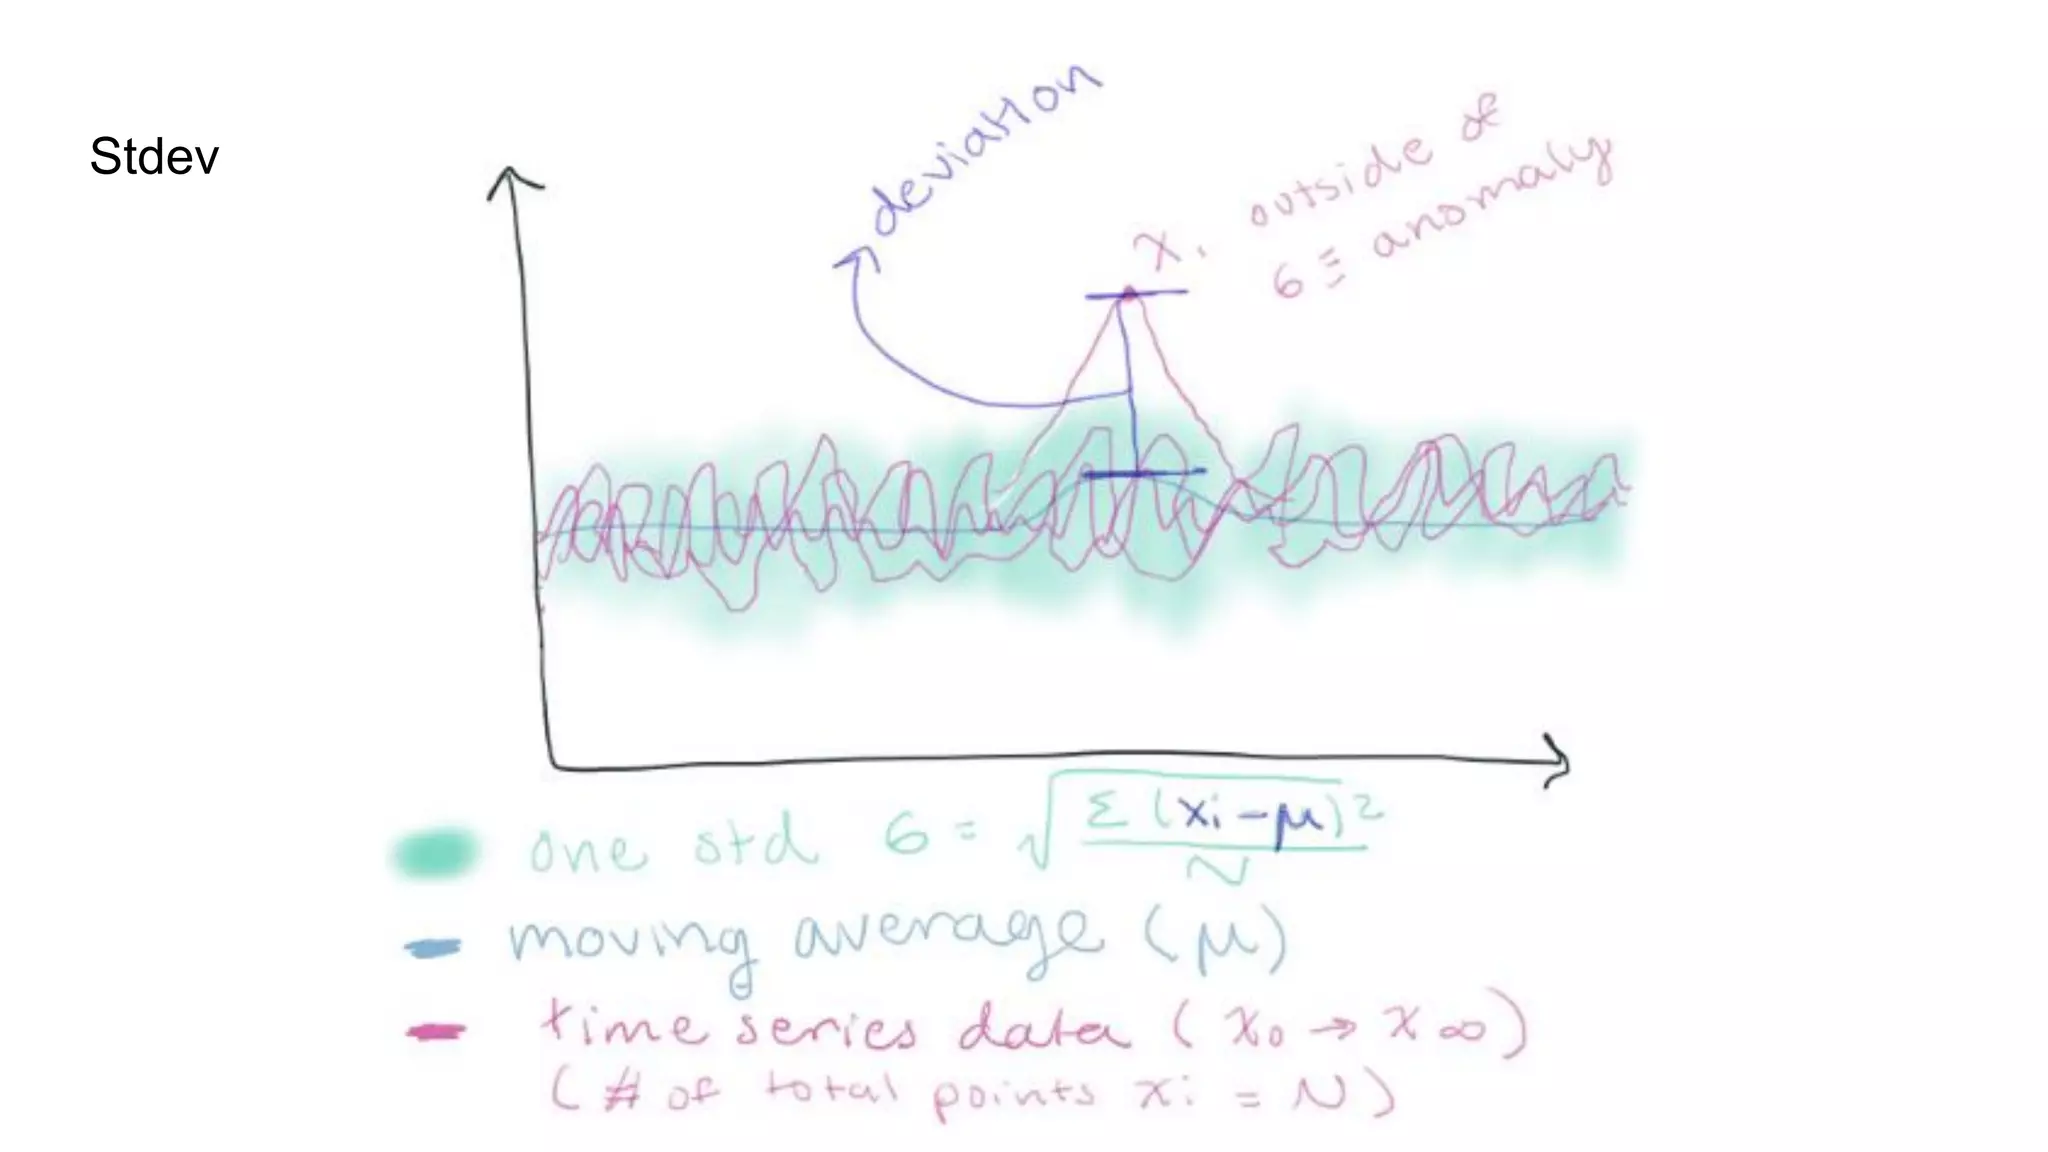 Stdev
deviation
x, outside of
σ ≡ anomaly
one std σ = √ Σ (xi - μ)2
N
moving average (μ)
time series data (x0 → x∞)
(# of total points xi = N)